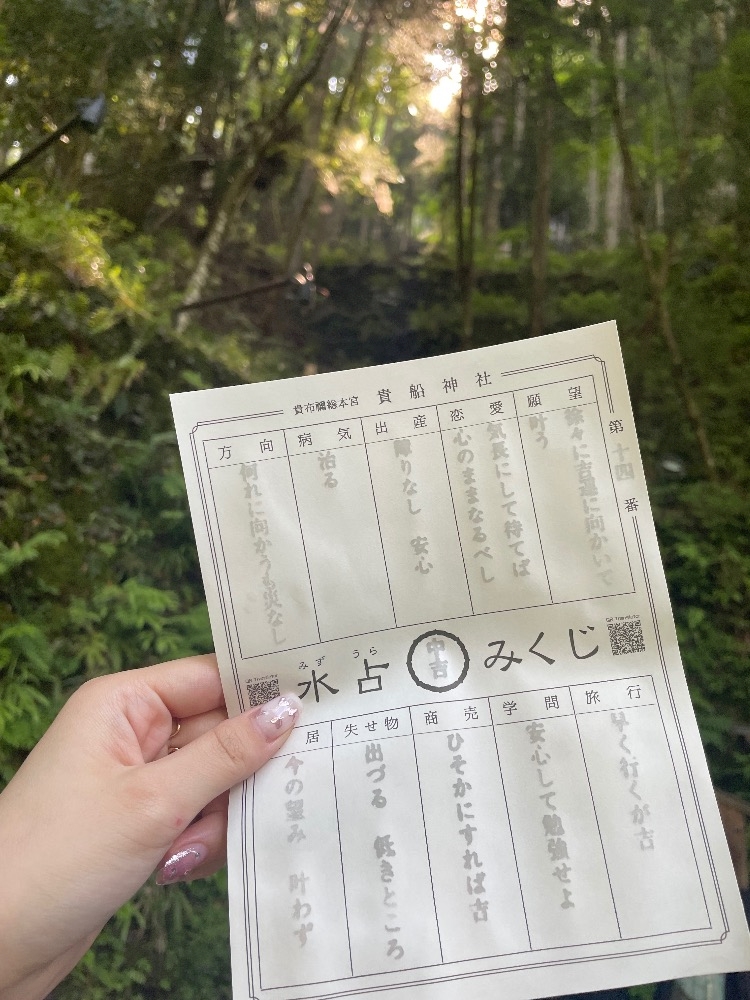 貴布禰総本宮 貴船神社
第十四番
願望
徐々に吉運に向かいて
叶う
恋愛
気長にして待てば
心のままなるべし
出産
障りなし 安心
病気
治る
方向
何れに向かうも災なし
みず うら
水占 中吉 みくじ
旅行
早く行くが吉
学問
安心して勉強せよ
商売
ひそかにすれば吉
失せ物
出づる 低きところ
居
今の望み 叶わず